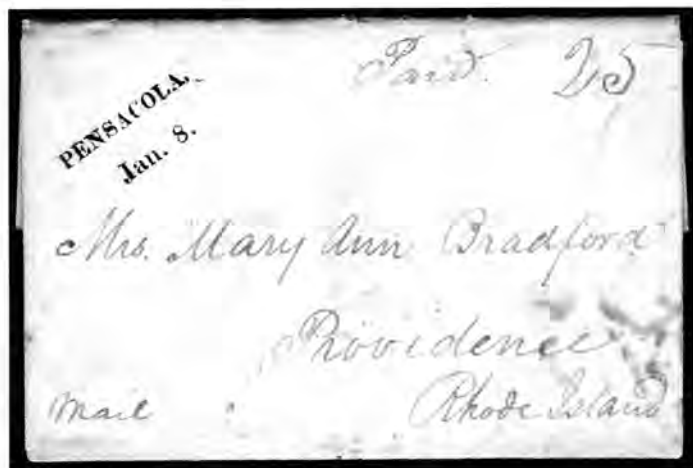 Paid. 25
PENSACOLA.
Jan. 8.
Mrs. Mary Ann Bradford
Providence
Rhode Island
Mail